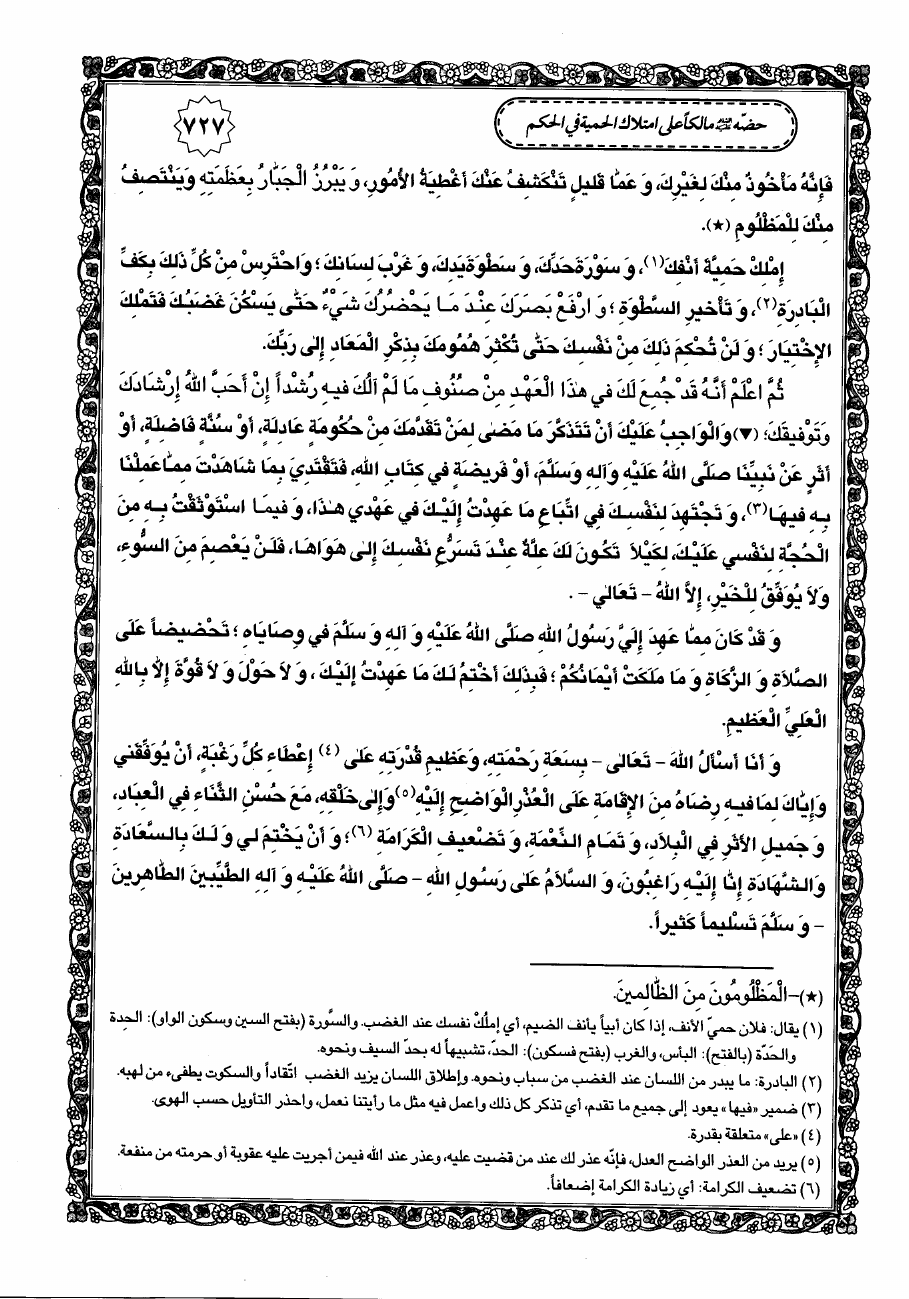 حضّه عليه السلام مالكاً على امتلاك الحمية في الحكم
٧٢٧
فَإِنَّهُ مَأْخُوذٌ مِنْكَ لِغَيْرِكَ، وَ عَمَّا قَليلٍ تَنْكَشِفُ عَنْكَ أَغْطِيَةُ الأُمُورِ، وَ يَبْرُزُ الْجَبَّارُ بِعَظَمَتِهِ وَيَنْتَصِفُ
مِنْكَ لِلْمَظْلُومِ (★).
إِمْلِكْ حَمِيَّةَ أَنْفِكَ(١)، وَ سَوْرَةَ حَدِّكَ، وَ سَطْوَةَ يَدِكَ، وَ غَرْبَ لِسَانِكَ ؛ وَ احْتَرِسْ مِنْ كُلِّ ذَلِكَ بِكَفِّ
الْبَادِرَةِ(٢)، وَ تَأْخيرِ السَّطْوَةِ ؛ وَ ارْفَعْ بَصَرَكَ عِنْدَ مَا يَحْضُرُكَ شَيْءٌ حَتّى يَسْكُنَ غَضَبُكَ فَتَمْلِكَ
الإِخْتِيَارَ ؛ وَ لَنْ تُحْكِمَ ذَلِكَ مِنْ نَفْسِكَ حَتّى تُكْثِرَ هُمُومَكَ بِذِكْرِ الْمَعَادِ إِلى رَبِّكَ.
ثُمَّ اعْلَمْ أَنَّهُ قَدْ جُمِعَ لَكَ في هذَا الْعَهْدِ مِنْ صُنُوفِ مَا لَمْ آلُكَ فيهِ رُشْداً إِنْ أَحَبَّ اللهُ إِرْشَادَكَ
وَتَوْفيقَكَ؛ (▼) وَالْوَاجِبُ عَلَيْكَ أَنْ تَتَذَكَّرَ مَا مَضى لِمَنْ تَقَدَّمَكَ مِنْ حُكُومَةٍ عَادِلَةٍ، أَوْ سُنَّةٍ فَاضِلَةٍ، أَوْ
أَثَرٍ عَنْ نَبِيِّنَا صَلَّى اللهُ عَلَيْهِ وَآلِهِ وَسَلَّمَ، أَوْ فَريضَةٍ في كِتَابِ اللهِ، فَتَقْتَدِيَ بِمَا شَاهَدْتَ مِمَّا عَمِلْنَا
بِهِ فيهَا(٣)، وَ تَجْتَهِدَ لِنَفْسِكَ فِي اتِّبَاعِ مَا عَهِدْتُ إِلَيْكَ في عَهْدي هذَا، وَ فيمَا اسْتَوْثَقْتُ بِهِ مِنَ
الْحُجَّةِ لِنَفْسي عَلَيْكَ، لِكَيْلاَ تَكُونَ لَكَ عِلَّةٌ عِنْدَ تَسَرُّعِ نَفْسِكَ إِلى هَوَاهَا، فَلَنْ يَعْصِمَ مِنَ السُّوءِ،
وَلاَ يُوَفِّقُ لِلْخَيْرِ، إِلاَّ اللهُ - تَعَالى - .
وَ قَدْ كَانَ مِمَّا عَهِدَ إِلَيَّ رَسُولُ اللهِ صَلَّى اللهُ عَلَيْهِ وَ آلِهِ وَ سَلَّمَ في وِصَايَاهِ ؛ تَحْضيضاً عَلَى
الصَّلاَةِ وَ الزَّكَاةِ وَ مَا مَلَكَتْ أَيْمَانُكُمْ ؛ فَبِذَلِكَ أَخْتِمُ لَكَ مَا عَهِدْتُ إِلَيْكَ، وَ لاَ حَوْلَ وَ لاَ قُوَّةَ إِلاَّ بِاللهِ
الْعَلِيِّ الْعَظيمِ.
وَ أَنَا أَسْأَلُ اللهَ - تَعَالى - بِسَعَةِ رَحْمَتِهِ، وَعَظيمِ قُدْرَتِهِ عَلى (٤) إِعْطَاءِ كُلِّ رَغْبَةٍ، أَنْ يُوَفِّقَني
وَإِيَّاكَ لِمَا فيهِ رِضَاهُ مِنَ الإِقَامَةِ عَلَى الْعُذْرِ الْوَاضِحِ إِلَيْهِ(٥)وَإِلى خَلْقِهِ، مَعَ حُسْنِ الثَّنَاءِ فِي الْعِبَادِ،
وَ جَميلِ الأَثَرِ فِي الْبِلاَدِ، وَ تَمَامِ النِّعْمَةِ، وَ تَضْعيفِ الْكَرَامَةِ (٦)؛ وَ أَنْ يَخْتِمَ لي وَ لَكَ بِالسَّعَادَةِ
وَالشَّهَادَةِ إِنَّا إِلَيْهِ رَاغِبُونَ، وَ السَّلاَمُ عَلى رَسُولِ اللهِ - صَلَّى اللهُ عَلَيْهِ وَ آلِهِ الطَّيِّبينَ الطَّاهِرينَ
- وَ سَلَّمَ تَسْليماً كَثيراً.
(★)-الْمَظْلُومُونَ مِنَ الظَّالِمينَ.
(١) يقال: فلان حميّ الأنف، إذا كان أبياً يأنف الضيم، أي إملُكْ نفسك عند الغضب. والسَّورة (بفتح السين وسكون الواو): الحِدة
والحَدّة (بالفتح): البأس، والغرب (بفتح فسكون): الحدّ، تشبيهاً له بحدّ السيف ونحوه.
(٢) البادرة: ما يبدر من اللسان عند الغضب من سباب ونحوه. وإطلاق اللسان يزيد الغضب اتّقاداً والسكوت يطفىء من لهبه.
(٣) ضمير «فيها» يعود إلى جميع ما تقدم، أي تذكر كل ذلك واعمل فيه مثل ما رأيتنا نعمل، واحذر التأويل حسب الهوى.
(٤) «على» متعلقة بقدرة.
(٥) يريد من العذر الواضح العدل، فإنّه عذر لك عند من قضيت عليه، وعذر عند الله فيمن أجريت عليه عقوبة أو حرمته من منفعة.
(٦) تضعيف الكرامة: أي زيادة الكرامة إضعافاً.